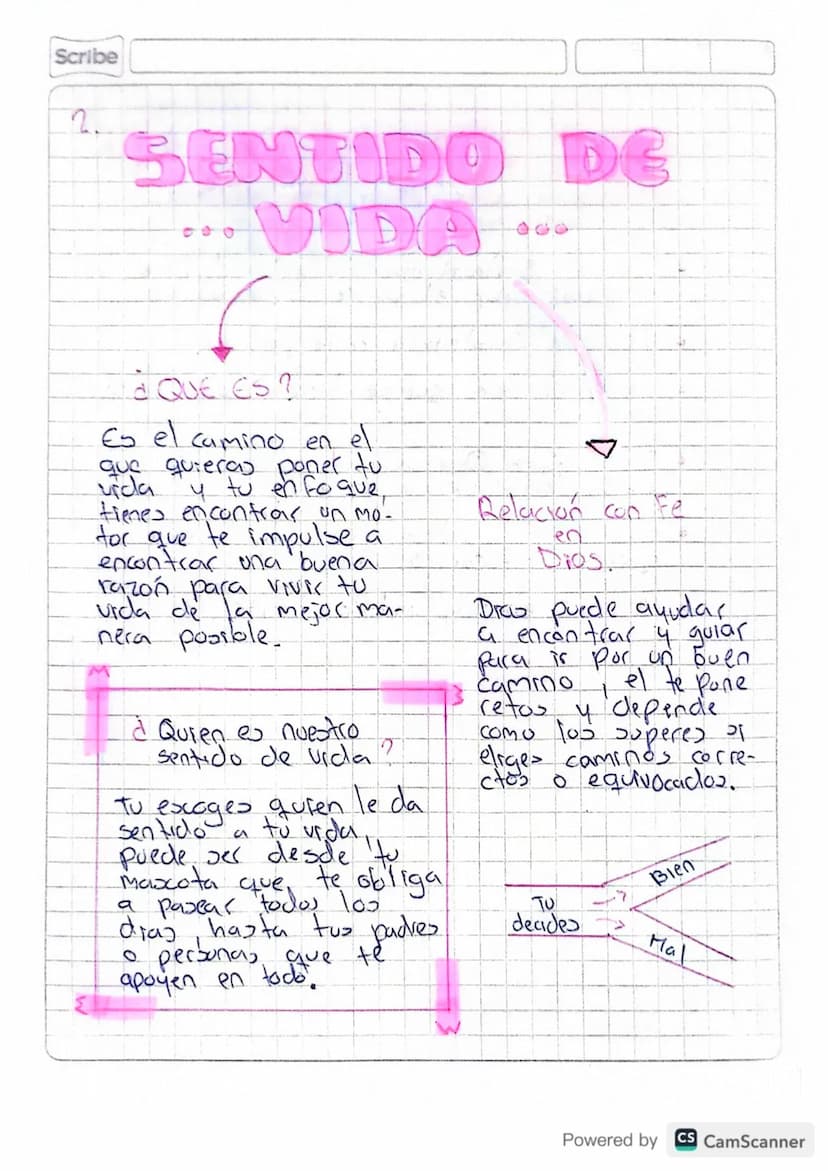 Scribe
2.
SENTIDO DE
... VIDA ...
¿QUE ES?
Es el camino en el
que quieras poner tu
vida y tu enfoque,
tienes encontrar un mo-
tor que te impulse a
encontrar una buena
razón para vivir tu
vida de la mejor ma-
nera posible.
¿Quien es nuestro
sentido de vida?
Tu escoges quien le da
sentido a tu vida,
puede ser desde tu
mascota que te obliga
a pasear todos los
dias, hasta tus padres
o personas que te
apoyen en todo.
Relación con Fe
en
Dios.
Dios puede ayudar
a encontrar y guiar
para ir por un buen
camino, el te pone
retos y depende
como los superes si
eliges caminos corre-
ctos o equivocados.
Tu
decides
Bien
Mal
Powered by CS CamScanner